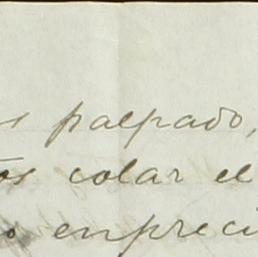 s palpado,
os colar el
o enpreci